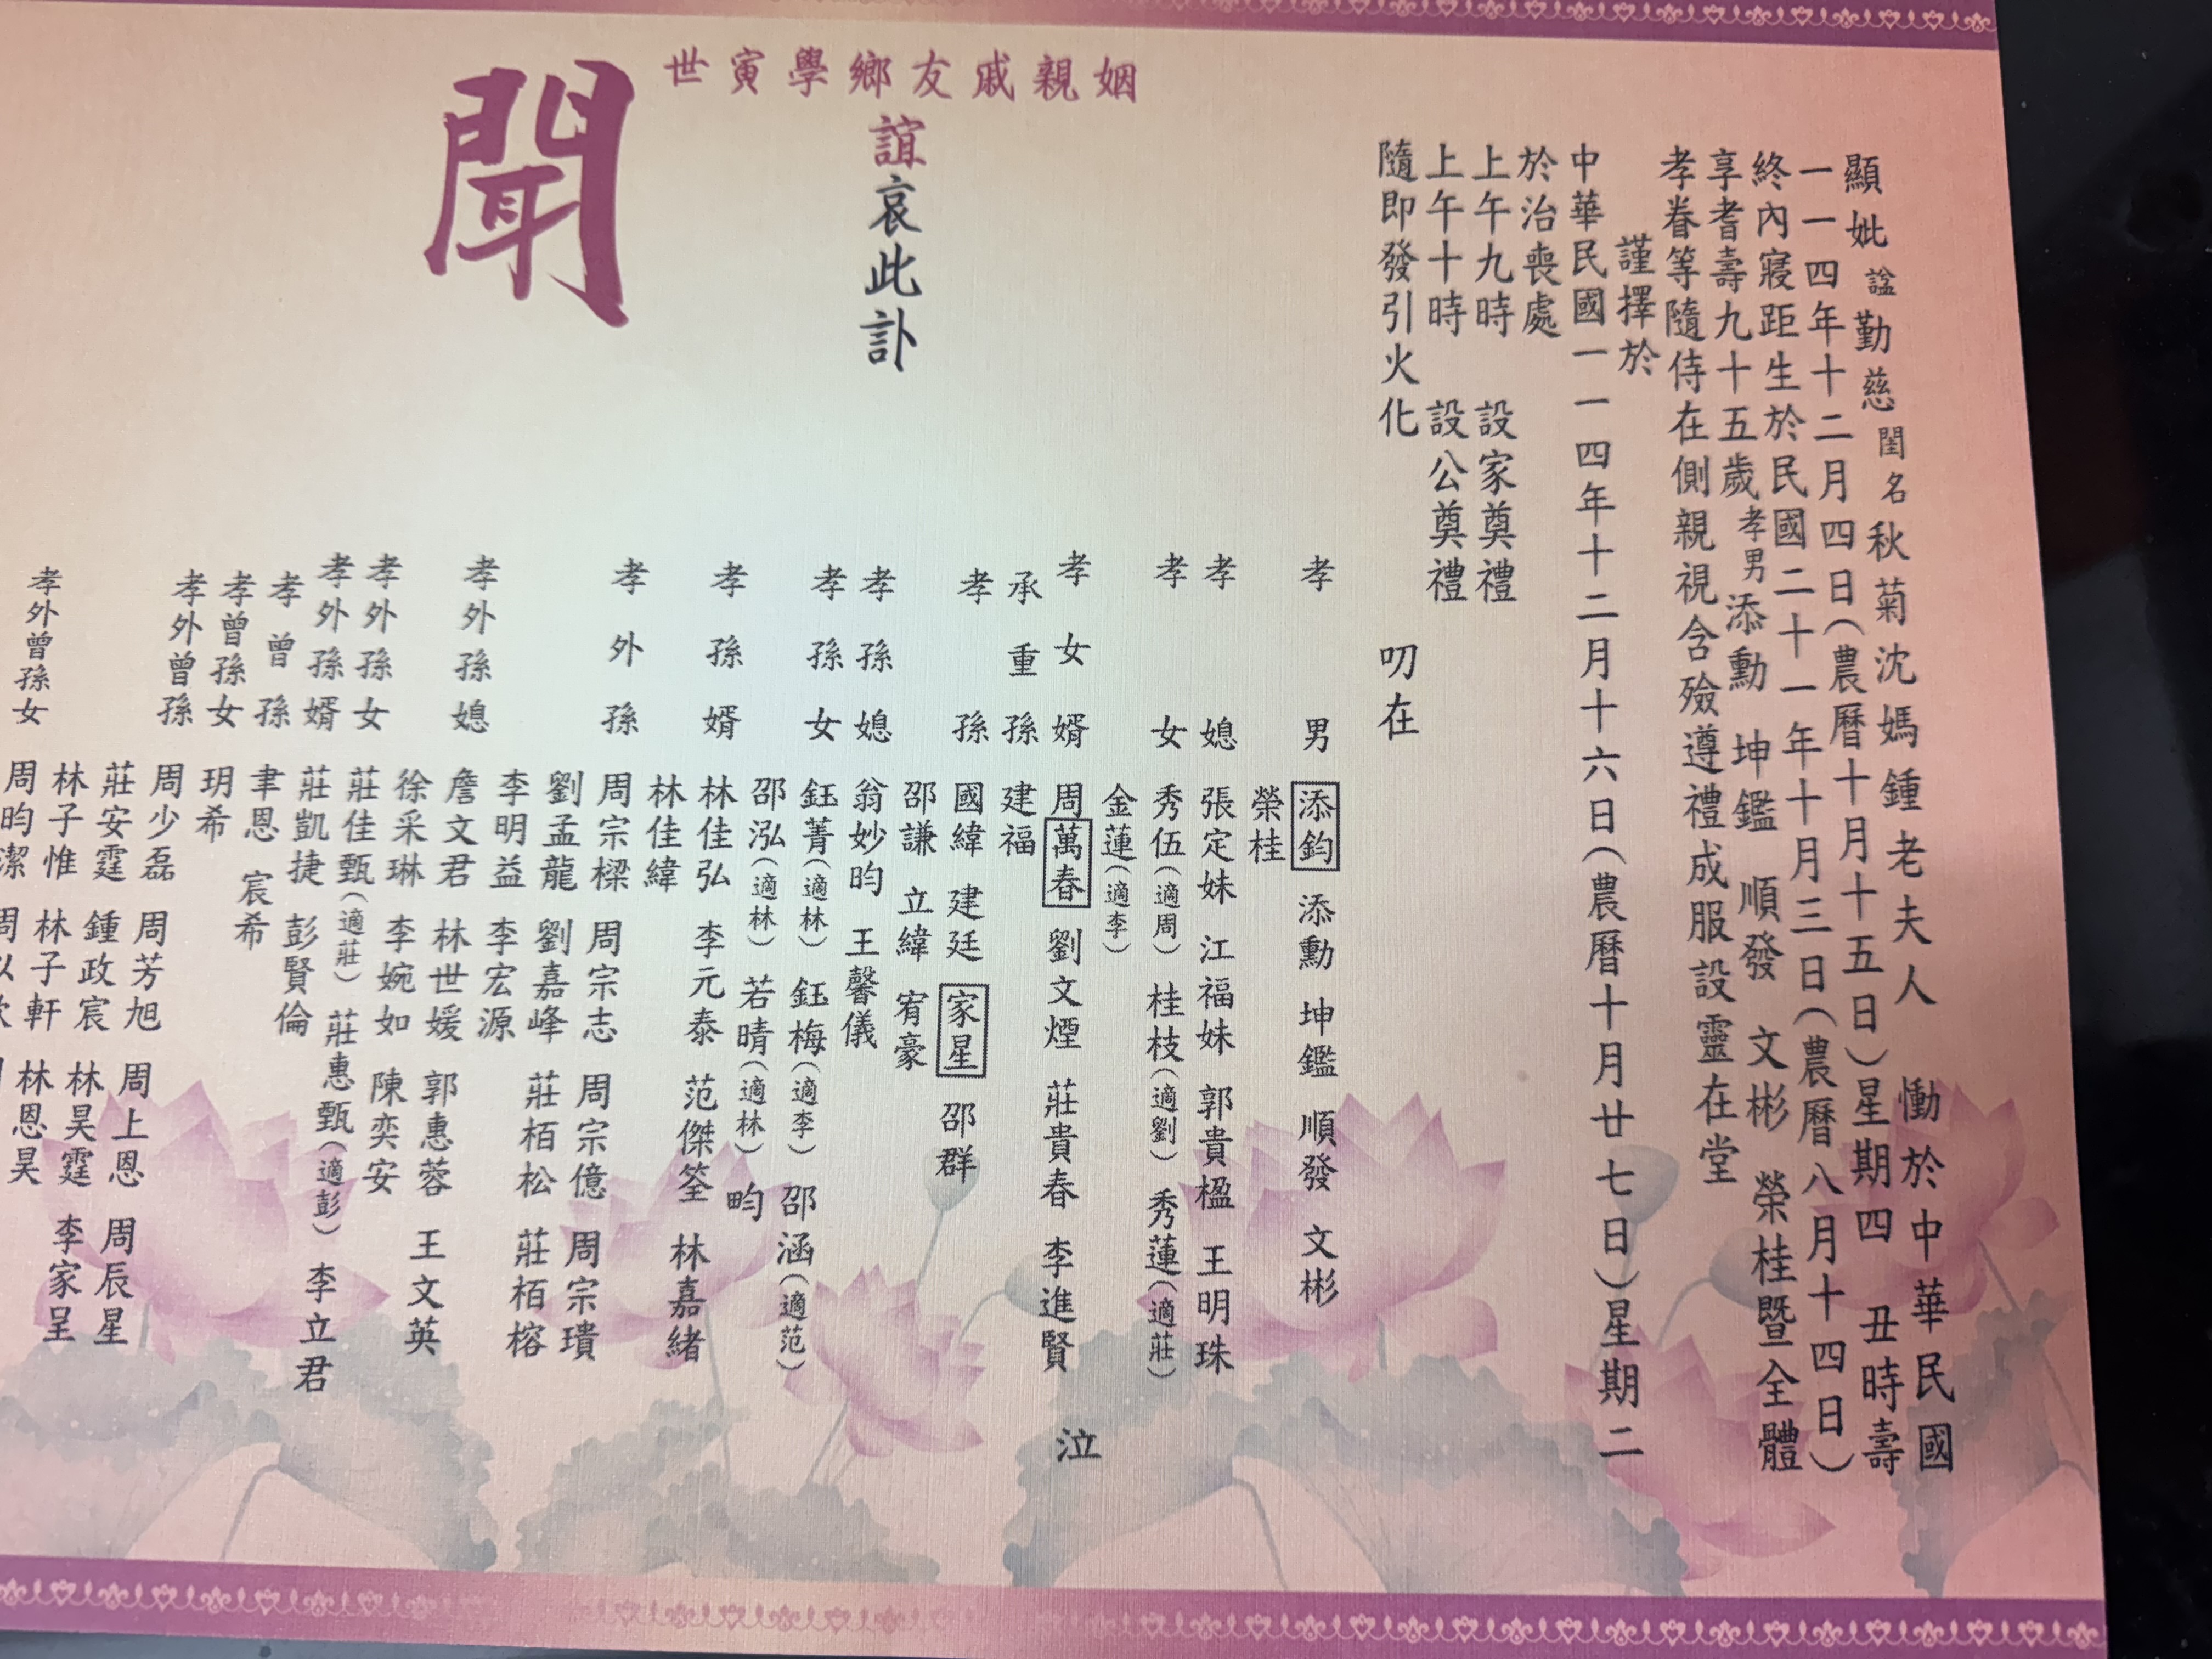 顯妣諡勤慈閨名秋菊沈媽鍾老夫人 慟於中華民國
一一四年十二月四日(農曆十月十五日)星期四 丑時壽
終內寢距生於民國二十一年十月三日(農曆八月十四日)
享耆壽九十五歲孝男添勳 坤鑑 順發 文彬 榮桂暨全體
孝眷等隨侍在側親視含殮遵禮成服設靈在堂
謹擇於
中華民國一一四年十二月十六日(農曆十月廿七日)星期二
於治喪處
上午九時 設家奠禮
上午十時 設公奠禮
隨即發引火化 叨在
姻親戚友鄉學寅世
誼哀此訃
聞
孝男 添鈞 添勳 坤鑑 順發 文彬
榮桂
孝媳 張定妹 江福妹 郭貴楹 王明珠
孝女 秀伍(適周) 桂枝(適劉) 秀蓮(適莊)
金蓮(適李)
孝女婿 周萬春 劉文煙 莊貴春 李進賢 泣
承重孫 建福
孝孫 國緯 建廷 家星 邵群
邵謙 立緯 宥豪
孝孫媳 翁妙昀 王馨儀
孝孫女 鈺菁(適林) 鈺梅(適李) 邵涵(適范)
邵泓(適林) 若晴(適林) 畇
孝孫婿 林佳弘 李元泰 范傑筌 林嘉緒
林佳緯
孝外孫 周宗樑 周宗志 周宗億 周宗璝
劉孟龍 劉嘉峰 莊栢松 莊栢榕
李明益 李宏源
孝外孫媳 詹文君 林世媛 郭惠蓉 王文英
徐采琳 李婉如 陳奕安
孝外孫女 莊佳甄(適莊) 莊惠甄(適彭) 李立君
孝外孫婿 莊凱捷 彭賢倫
孝曾孫 聿恩 宸希
孝曾孫女 玥希
孝外曾孫 周少磊 周芳旭 周上恩 周辰星
莊安霆 鍾政宸 林昊霆 李家呈
林子惟 林子軒 林恩昊
孝外曾孫女 周昀潔 周以